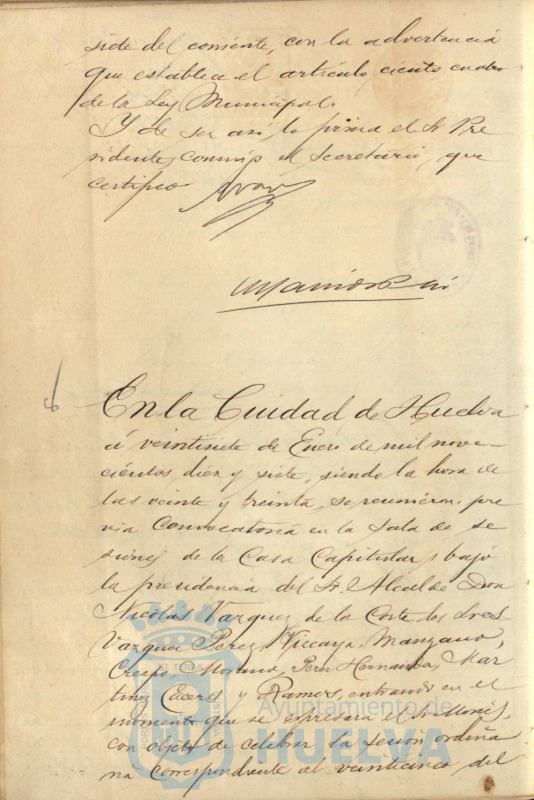 siete del corriente, con la advertencia
que establece el artículo ciento cuatro
de la Ley Municipal.
Y de ser así, lo firma el Sr. Pre
sidente, conmigo el Secretario, que
certifico
6
En la Ciudad de Huelva
á veintisiete de Enero de mil nove-
cientos diez y siete, siendo la hora de
las veinte y treinta, se reunieron, pre
via convocatoria en la Sala de se
siones de la Casa Capitular, bajo
la presidencia del Sr. Alcalde Don
Nicolás Vazquez de la Corte, los Sres.
Vazquez Perez, Vizcaya, Manzano,
Crespo, Morano, Perez Hernandez, Mar
tinez, y Ramos, entrando en el
momento que se expresará el Sr.
con objeto de celebrar la sesión ordina
ria correspondiente al veinticinco del
Ayuntamiento de
HUELVA